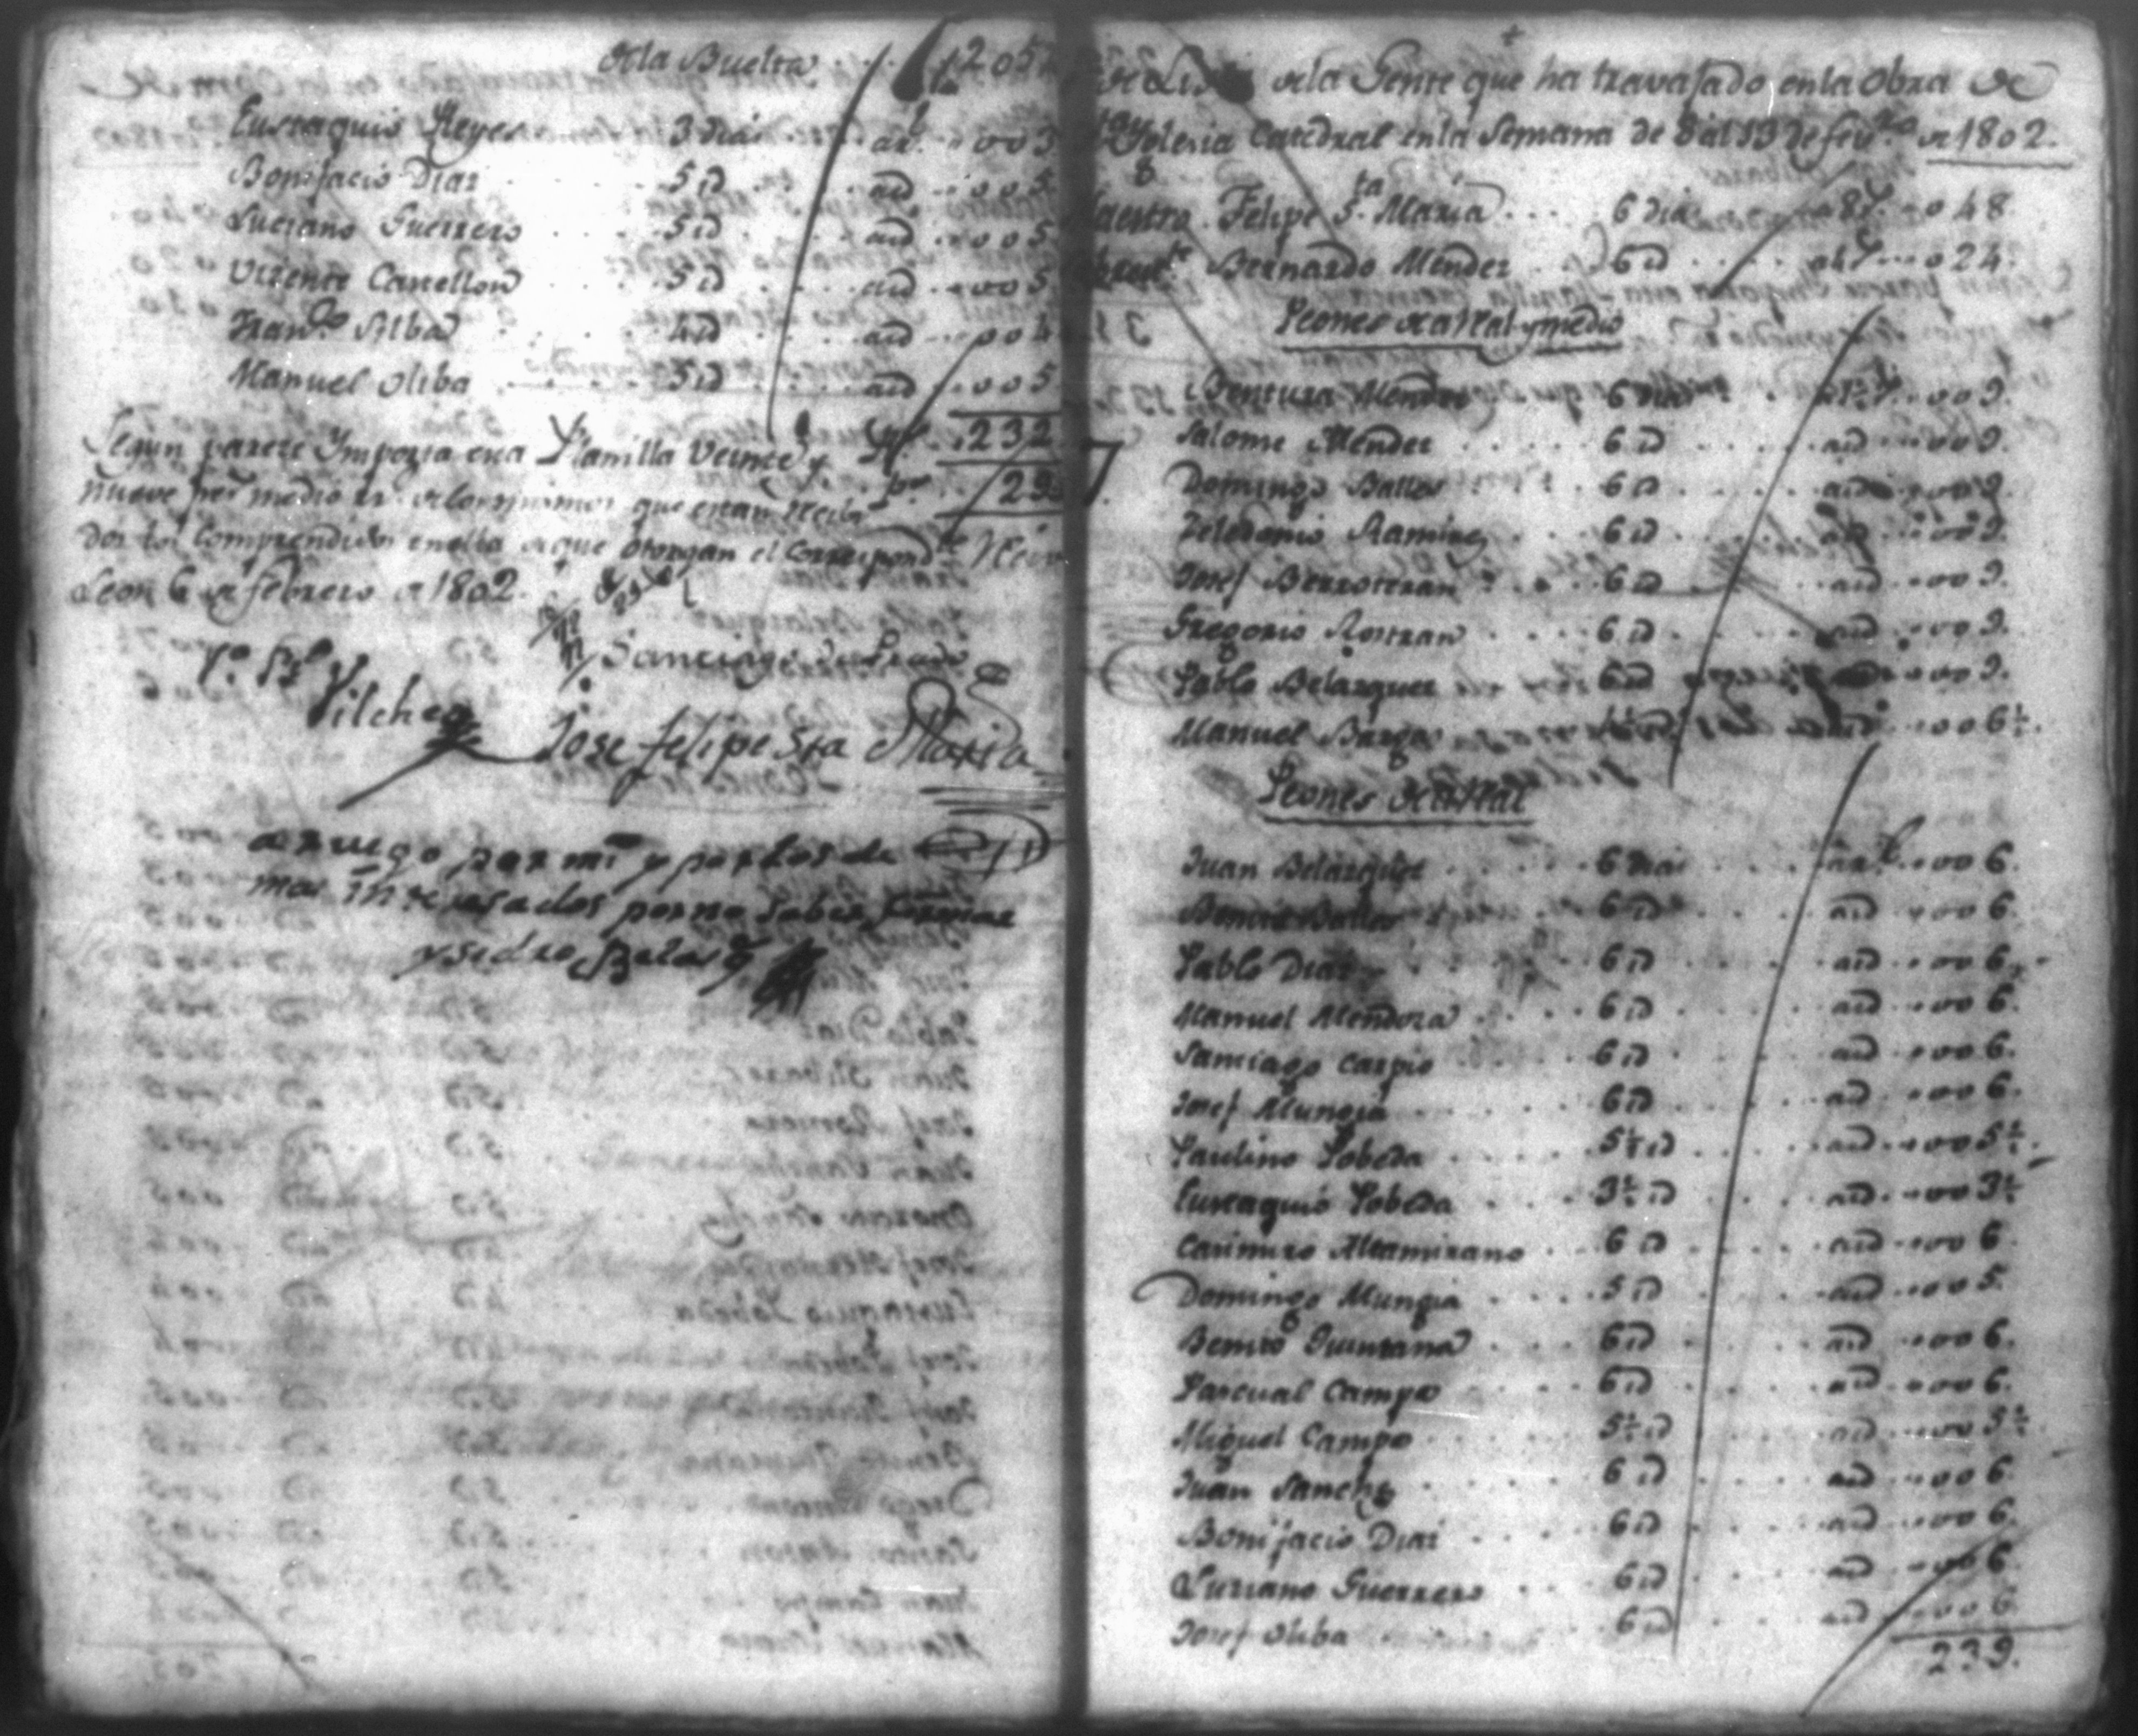 de la Buelta . . . 205
Eustaquio Reyes . . 3 dias . . . a 1 r. . . 003
Bonifacio Diaz . . . 5 id . . . id . . 005
Luciano Guerrero . . . 5 id . . . id . . 005
Vizente Castellon . . . 5 id . . . id . . 005
Fran.co Alba . . . 4 id . . . id . . 004
Manuel Oliba . . . 5 id . . . id . . 005
Segun parece Importa esta Planilla Veinte y . . 232
Nueve ps. medio rr. de los mismos que estan Reciv . . 29
dos los Comprendidos en ella de que otorgan el Correspond.te
Leon 6 de febrero de 1802.
V.o B.o Vilchez
Santiago de Prado
Jose felipe Sta Maria
a ruego por mi y por los de
mas interesados por no saber firmar
ysidro Belasq.z
de la Gente que ha travajado en la Obra de
Yglesia Catedral en la Semana de 8 al 13 de feb.ro de 1802.
Maestro Felipe S.ta Maria . . . 6 dias . . . a 8 r. . . 048
Bernardo Mendez . . 6 id . . . a 4 r. . . 024
Peones de a Real y medio
Bentura Mendez . . 6 dias . . . a 1½ r. . . 009.
Salome Mendez . . . 6 id . . . id . . 009.
Domingo Balles . . . 6 id . . . id . . 009.
Teledonio Ramirez . . 6 id . . . id . . 009.
Josef Berroteran . . . 6 id . . . id . . 009.
Gregorio Rostran . . . 6 id . . . id . . 009.
Pablo Belazquez . . 6 id . . . id . . 009.
Manuel Barga . . . id . . 006½.
Peones de a Real
Juan Belazquez . . . 6 dias . . . a 1 r. . . 006.
6 id . . . id . . 006.
Pablo Diaz . . . 6 id . . . id . . 006.
Manuel Mendoza . . . 6 id . . . id . . 006.
Santiago Carpio . . . 6 id . . . id . . 006.
Josef Mungia . . . 6 id . . . id . . 006.
Paulino Pobeda . . . 5½ id . . . id . . 005½.
Eustaquio Pobeda . . . 3½ id . . . id . . 003½
Casimiro Altamirano . . 6 id . . . id . . 006
Domingo Mungia . . . 5 id . . . id . . 005.
Benito Quintana . . . 6 id . . . id . . 006.
Pascual Campo . . . 6 id . . . id . . 006.
Miguel Campo . . . 5½ id . . . id . . 005½
Juan Sanchz . . . 6 id . . . id . . 006.
Bonifacio Diaz . . . 6 id . . . id . . 006.
Luziano Guerrero . . 6 id . . . id . . 006.
Josef Oliba . . . 6 id . . . id . . 006.
239.